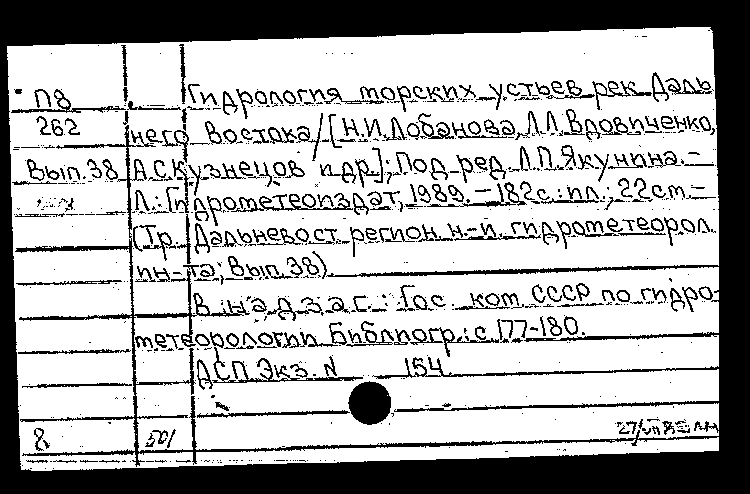 П8 Гидрология морских устьев рек Даль
262 него Востока/[Н.И.Лобанова, Л.Л.Вдовиченко,
Вып.38 А.С.Кузнецов и др.]; Под ред. Л.П.Якунина.–
Л.: Гидрометеоиздат, 1989.–182с.:ил.; 22см–
(Тр. Дальневост. регион. н-и. гидрометеорол.
ин-та; Вып. 38)
В надзаг.: Гос. ком. СССР по гидро-
метеорологии. Библиогр.: с 177-180.
ДСП. Экз. N 154.
8 501